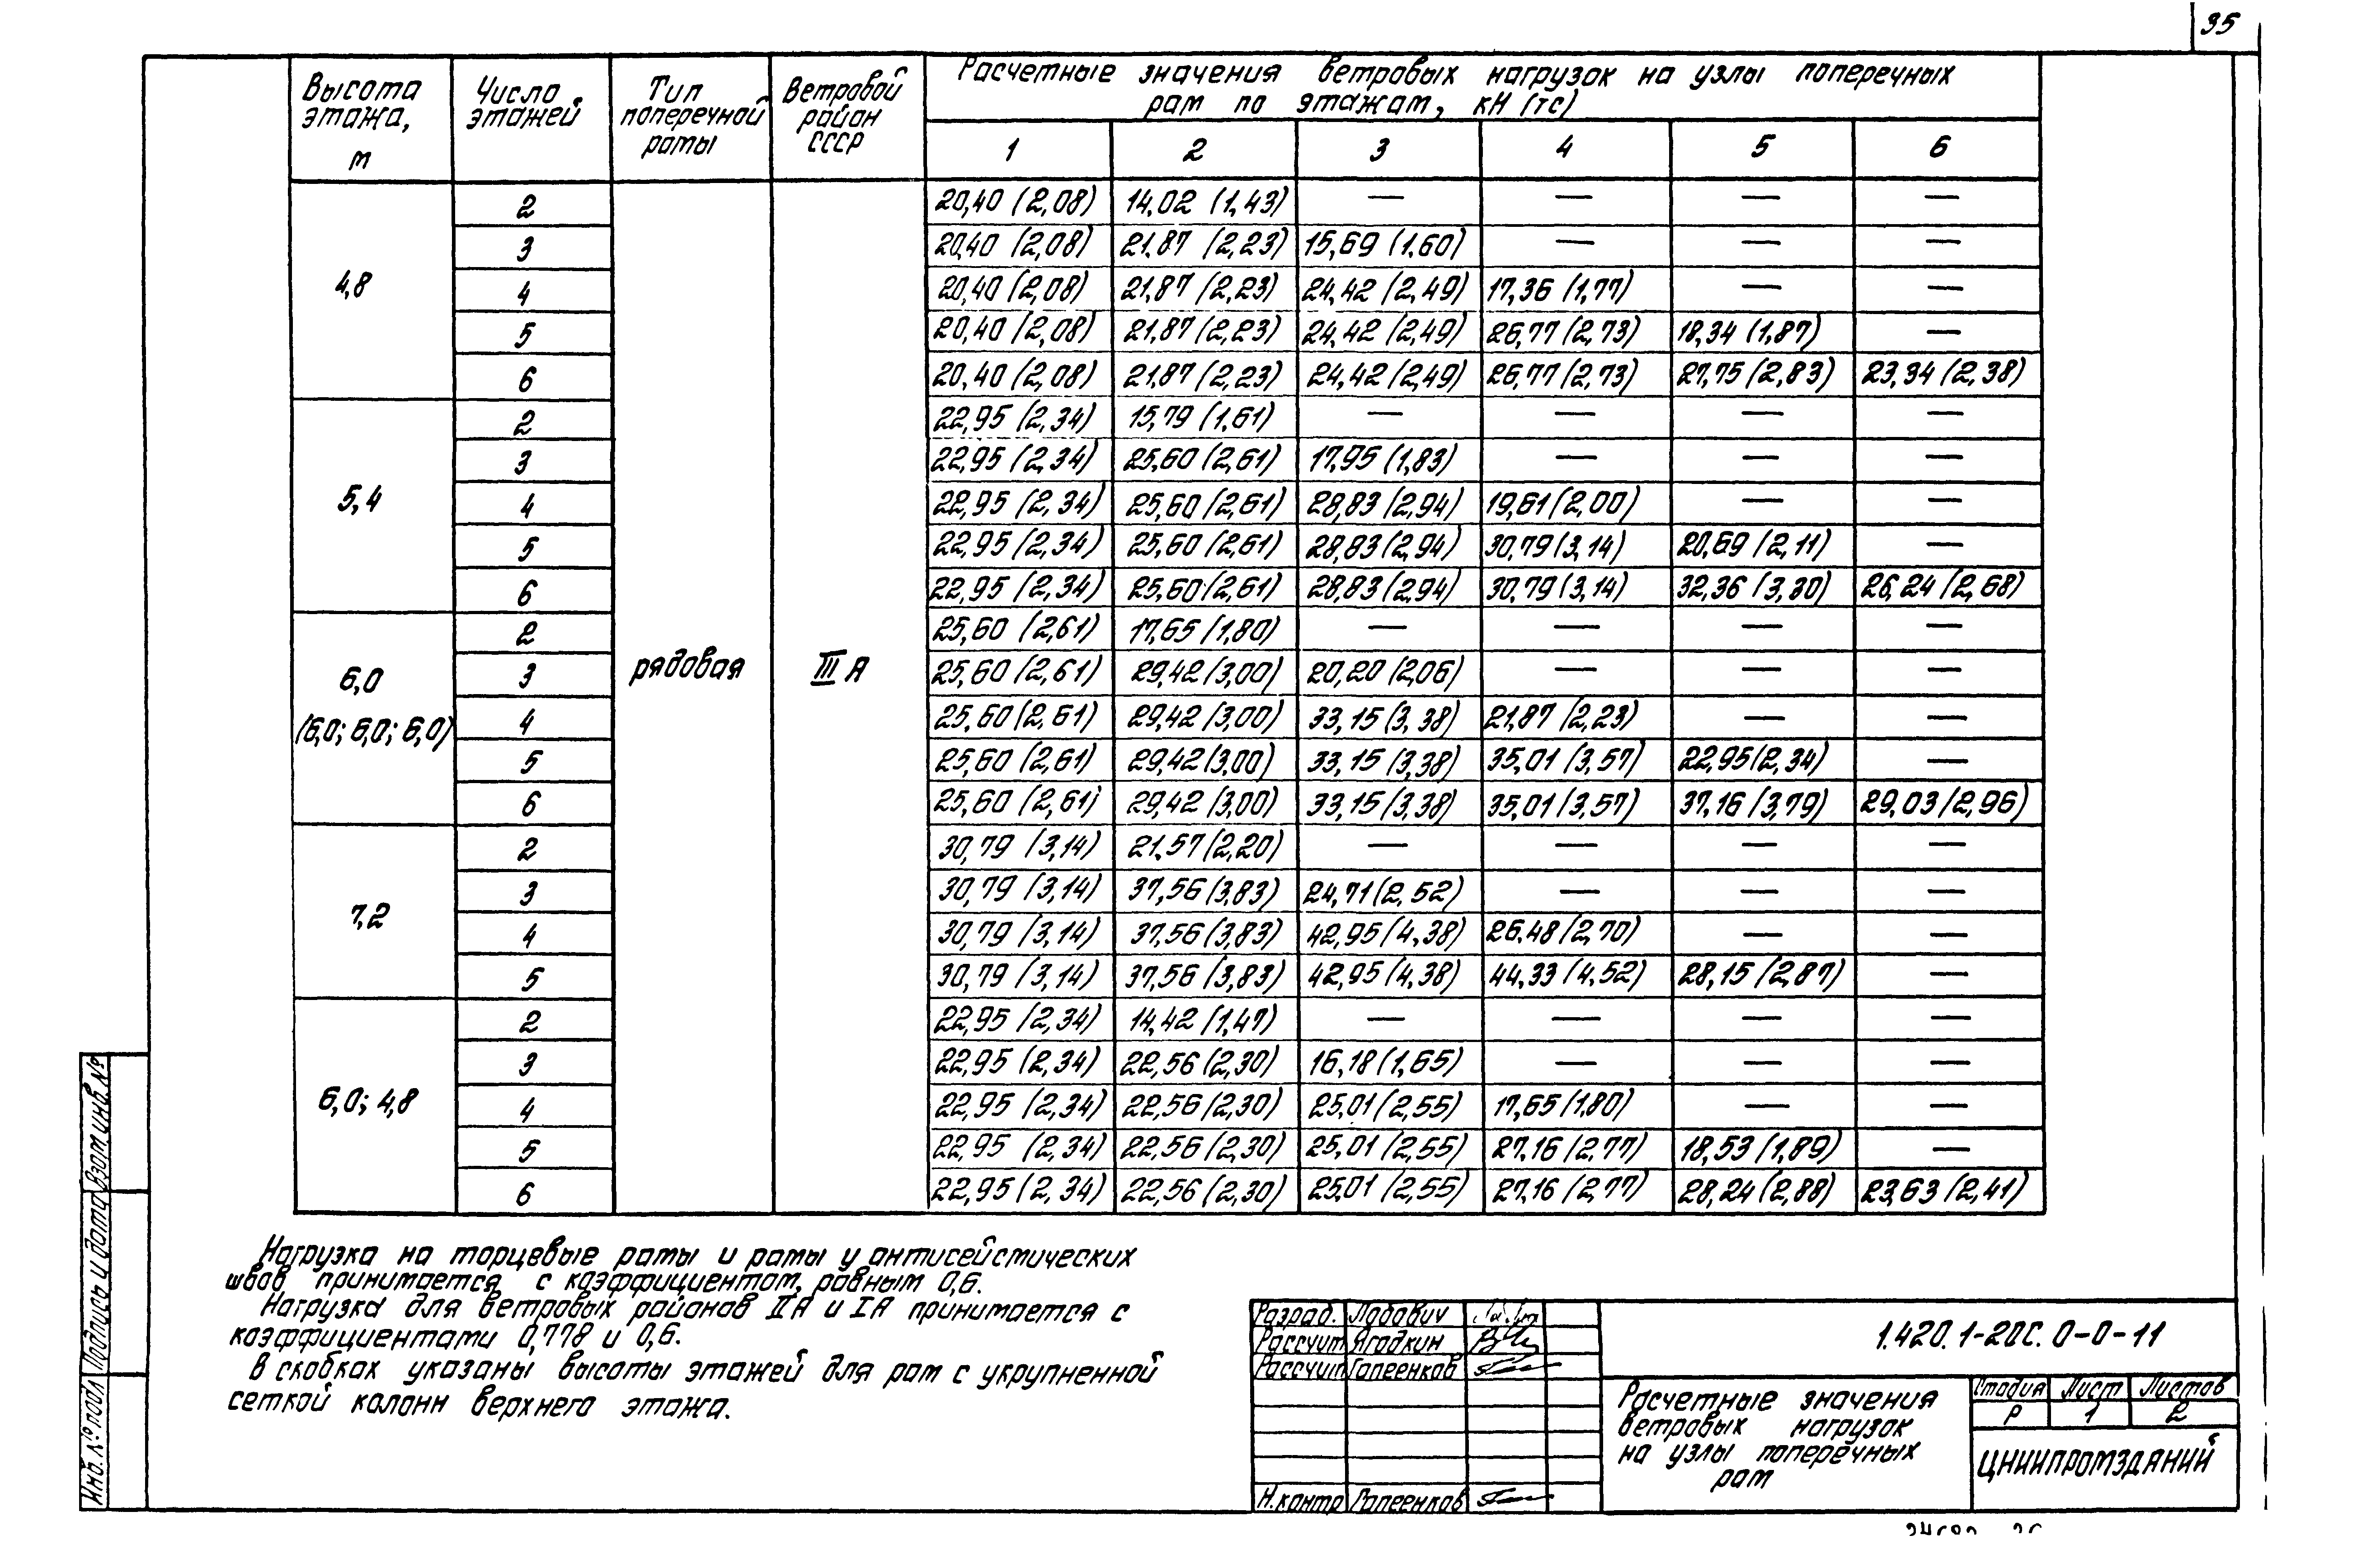 35
Высота этажа, м | Число этажей | Тип поперечной рамы | Ветровой район СССР | Расчетные значения ветровых нагрузок на узлы поперечных рам по этажам, кН (тс)
1 | 2 | 3 | 4 | 5 | 6
4,8 | 2 | 20,40 (2,08) | 14,02 (1,43) | — | — | — | —
3 | 20,40 (2,08) | 21,87 (2,23) | 15,69 (1,60) | — | — | —
4 | 20,40 (2,08) | 21,87 (2,23) | 24,42 (2,49) | 17,36 (1,77) | — | —
5 | 20,40 (2,08) | 21,87 (2,23) | 24,42 (2,49) | 26,77 (2,73) | 18,34 (1,87) | —
6 | 20,40 (2,08) | 21,87 (2,23) | 24,42 (2,49) | 26,77 (2,73) | 27,75 (2,83) | 23,34 (2,38)
5,4 | 2 | 22,95 (2,34) | 15,79 (1,61) | — | — | — | —
3 | 22,95 (2,34) | 25,60 (2,61) | 17,95 (1,83) | — | — | —
4 | 22,95 (2,34) | 25,60 (2,61) | 28,83 (2,94) | 19,61 (2,00) | — | —
5 | 22,95 (2,34) | 25,60 (2,61) | 28,83 (2,94) | 30,79 (3,14) | 20,69 (2,11) | —
6 | 22,95 (2,34) | 25,60 (2,61) | 28,83 (2,94) | 30,79 (3,14) | 32,36 (3,30) | 26,24 (2,68)
6,0 (6,0; 6,0; 6,0) | 2 | рядовая | III А | 25,60 (2,61) | 17,65 (1,80) | — | — | — | —
3 | 25,60 (2,61) | 29,42 (3,00) | 20,20 (2,06) | — | — | —
4 | 25,60 (2,61) | 29,42 (3,00) | 33,15 (3,38) | 21,87 (2,23) | — | —
5 | 25,60 (2,61) | 29,42 (3,00) | 33,15 (3,38) | 35,01 (3,57) | 22,95 (2,34) | —
6 | 25,60 (2,61) | 29,42 (3,00) | 33,15 (3,38) | 35,01 (3,57) | 37,16 (3,79) | 29,03 (2,96)
7,2 | 2 | 30,79 (3,14) | 21,57 (2,20) | — | — | — | —
3 | 30,79 (3,14) | 37,56 (3,83) | 24,71 (2,52) | — | — | —
4 | 30,79 (3,14) | 37,56 (3,83) | 42,95 (4,38) | 26,48 (2,70) | — | —
5 | 30,79 (3,14) | 37,56 (3,83) | 42,95 (4,38) | 44,33 (4,52) | 28,15 (2,87) | —
6,0; 4,8 | 2 | 22,95 (2,34) | 14,42 (1,47) | — | — | — | —
3 | 22,95 (2,34) | 22,56 (2,30) | 16,18 (1,65) | — | — | —
4 | 22,95 (2,34) | 22,56 (2,30) | 25,01 (2,55) | 17,65 (1,80) | — | —
5 | 22,95 (2,34) | 22,56 (2,30) | 25,01 (2,55) | 27,16 (2,77) | 18,53 (1,89) | —
6 | 22,95 (2,34) | 22,56 (2,30) | 25,01 (2,55) | 27,16 (2,77) | 28,24 (2,88) | 23,63 (2,41)
Нагрузка на торцевые рамы и рамы у антисейсмических
швов принимается с коэффициентом, равным 0,6.
Нагрузка для ветровых районов IIА и IА принимается с
коэффициентами 0,778 и 0,6.
В скобках указаны высоты этажей для рам с укрупненной
сеткой колонн верхнего этажа.
Инв. № подл | Подпись и дата | Взам инв. №
Разраб. Лабович
Рассчит Ягодкин
Рассчит Гапеенков
Н.контр Гапеенков
1.420.1-20с. 0-0-11
Расчетные значения
ветровых нагрузок
на узлы поперечных
рам
Стадия | Лист | Листов
Р | 1 | 2
ЦНИИПРОМЗДАНИЙ